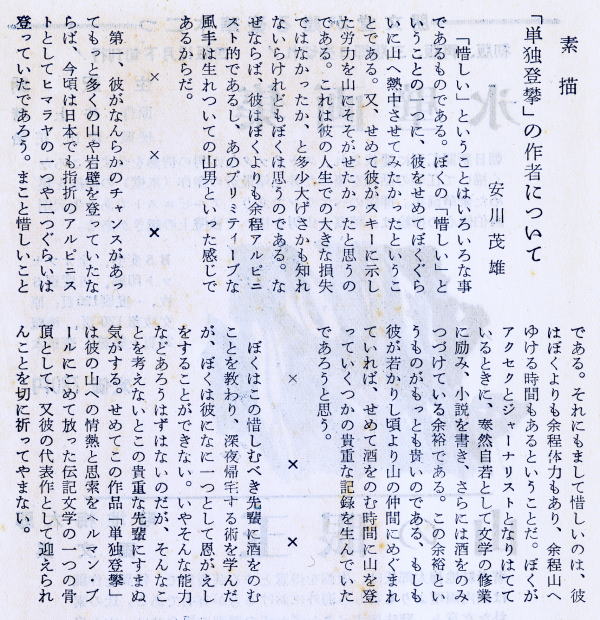 素描
「単独登攀」の作者について
安川茂雄
「惜しい」ということはいろいろな事
であるものである。ぼくの「惜しい」と
いうことの一つに、彼をせめてぼくぐら
いに山へ熱中させてみたかったというこ
とである。又、せめて彼がスキーに示し
た労力を山にそそがせたかったと思うの
である。これは彼の人生での大きな損失
ではなかったか、と多少大げさかも知れ
ないらけれどもぼくは思うのである。な
ぜならば、彼はぼくよりも余程アルピニ
スト的であるし、あのプリミティーブな
風手は生れついての山男といった感じで
あるからだ。
×　×
第一、彼がなんらかのチャンスがあっ
てもっと多くの山や岩壁を登っていたな
らば、今頃は日本でも指折のアルピニス
トとしてヒマラヤの一つや二つぐらいは
登っていたであろう。まこと惜しいこと
である。それにもまして惜しいのは、彼
はぼくよりも余程体力もあり、余程山へ
ゆける時間もあるということだ。ぼくが
アクセクとジャーナリストとなりはてて
いるときに、泰然自若として文学の修業
に励み、小説を書き、さらには酒をのみ
つづけている余裕である。この余裕とい
うものがもっとも貴いのである、もしも
彼が若かりし頃より山の仲間にめぐまれ
ていれば、せめて酒をのむ時間に山を登
っていくつかの貴重な記録を生んでいた
であろうと思う。
×　×　×
ぼくはこの惜しむべき先輩に酒をのむ
ことを教わり、深夜帰宅する術を学んだ
が、ぼくは彼になに一つとして恩がえし
をすることができない。いやそんな能力
などあろうはずはないのだが、そんなこ
とを考えないとこの貴重な先輩にすまぬ
気がする。せめてこの作品「単独登攀」
は彼の山への情熱と思索をヘルマン・ブ
ールにこめて放った伝記文学の一つの骨
頂として、又彼の代表作として迎えられ
んことを切に祈ってやまない。